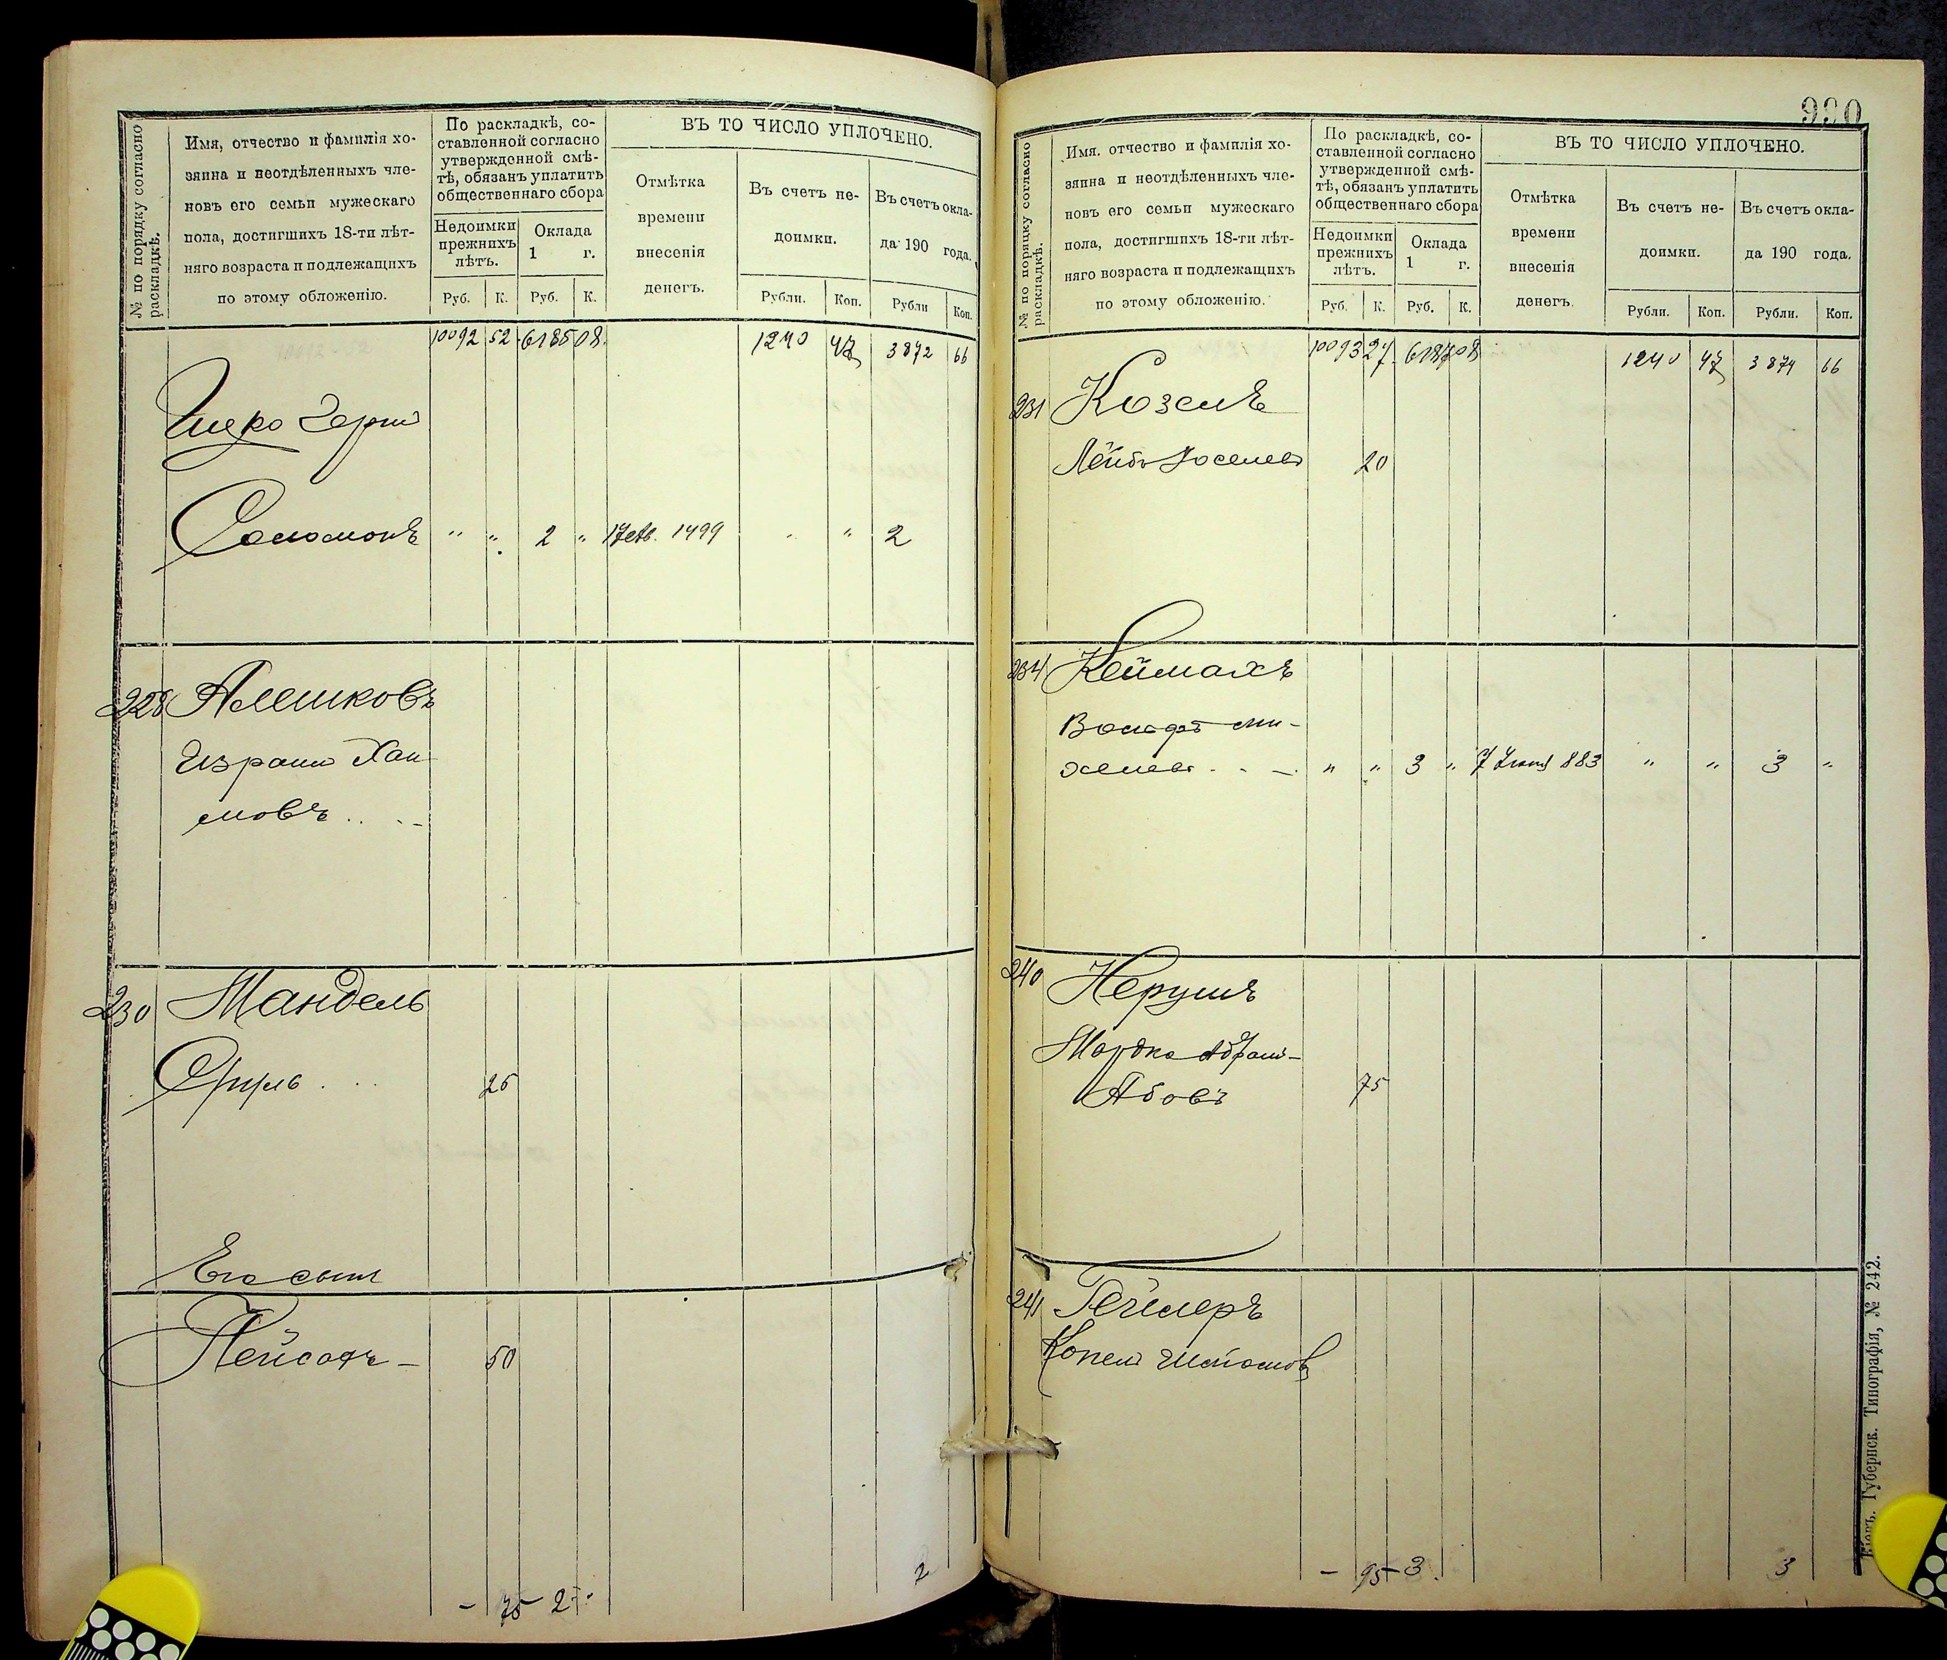 № по порядку согласно раскладкѣ.
Имя, отчество и фамилія хо-
зяина и неотдѣленныхъ чле-
новъ его семьи мужескаго
пола, достигшихъ 18-ти лѣт-
няго возраста и подлежащихъ
по этому обложенію.
По раскладкѣ, со-
ставленной согласно
утвержденной смѣ-
тѣ, обязанъ уплатить
общественнаго сбора
Недоимки
прежнихъ
лѣтъ.
Оклада
1 г.
Руб. К. Руб. К.
ВЪ ТО ЧИСЛО УПЛОЧЕНО.
Отмѣтка
времени
внесенія
денегъ.
Въ счетъ не-
доимки.
Въ счетъ окла-
да 190 года.
Рубли. Коп. Рубли Коп.
10092 52 6185 08 1240 47 3872 66
Соломонъ " " 2 " 1499 " " 2
228 Алешковъ
Израиль Хаи-
мовъ
230 Мандель
Сруль 25
Его сынъ
Пейсахъ - 50
- 75 2 - 2
990
№ по порядку согласно раскладкѣ.
Имя, отчество и фамилія хо-
зяина и неотдѣленныхъ чле-
новъ его семьи мужескаго
пола, достигшихъ 18-ти лѣт-
няго возраста и подлежащихъ
по этому обложенію.
По раскладкѣ, со-
ставленной согласно
утвержденной смѣ-
тѣ, обязанъ уплатить
общественнаго сбора
Недоимки
прежнихъ
лѣтъ.
Оклада
1 г.
Руб. К. Руб. К.
ВЪ ТО ЧИСЛО УПЛОЧЕНО.
Отмѣтка
времени
внесенія
денегъ.
Въ счетъ не-
доимки.
Въ счетъ окла-
да 190 года.
Рубли. Коп. Рубли. Коп.
10093 27 6187 08 1240 47 3874 66
231 Козелъ
Лейбъ Іоселевъ 20
234 Кеймахъ
Вольфъ Ми-
хелевъ " " 3 " 7 883 " " 3 "
240 Нерушъ
Мордко Абрам-
Абовъ 75
241 Геймеръ
Копель
- 95 - 3 3
Кіевъ. Губернск. Типографія, № 242.